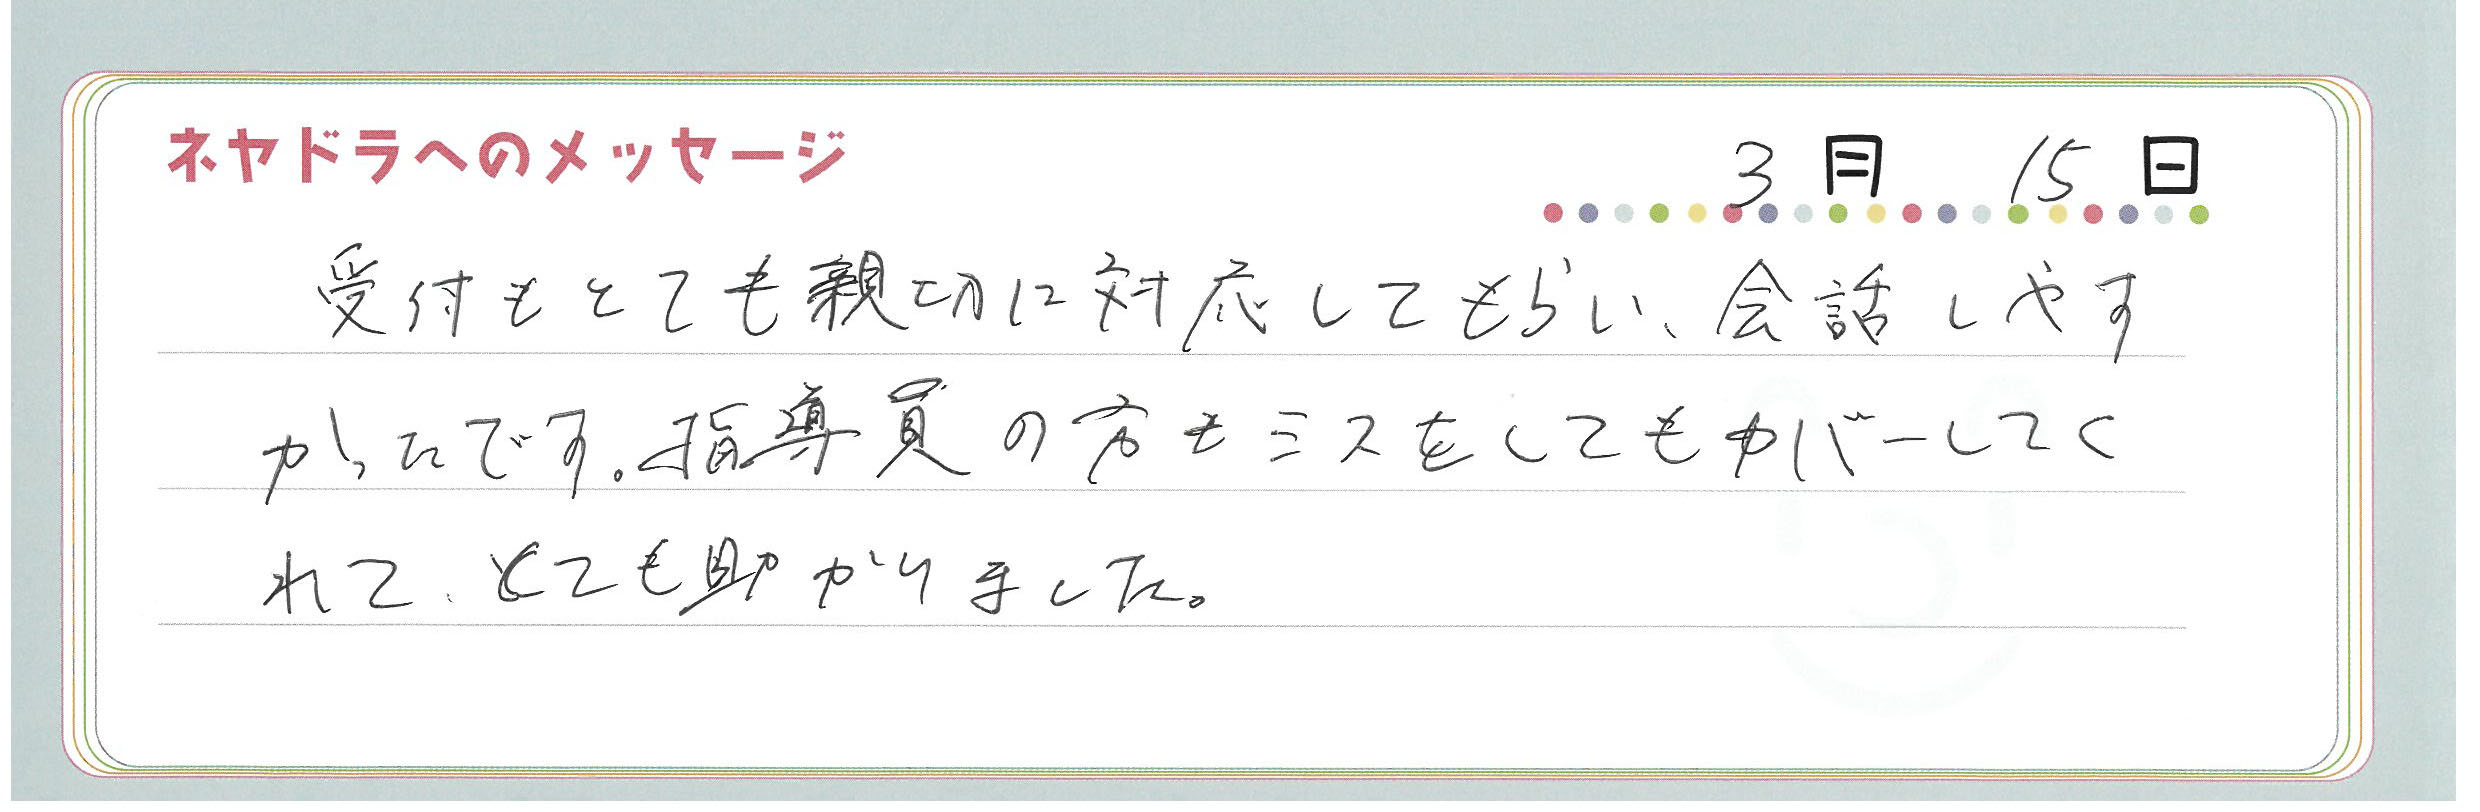 ネヤドラへのメッセージ
3月 15日
受付もとても親切に対応してもらい、会話しやす
かったです。指導員の方もミスをしてもカバーしてく
れて、とても助かりました。